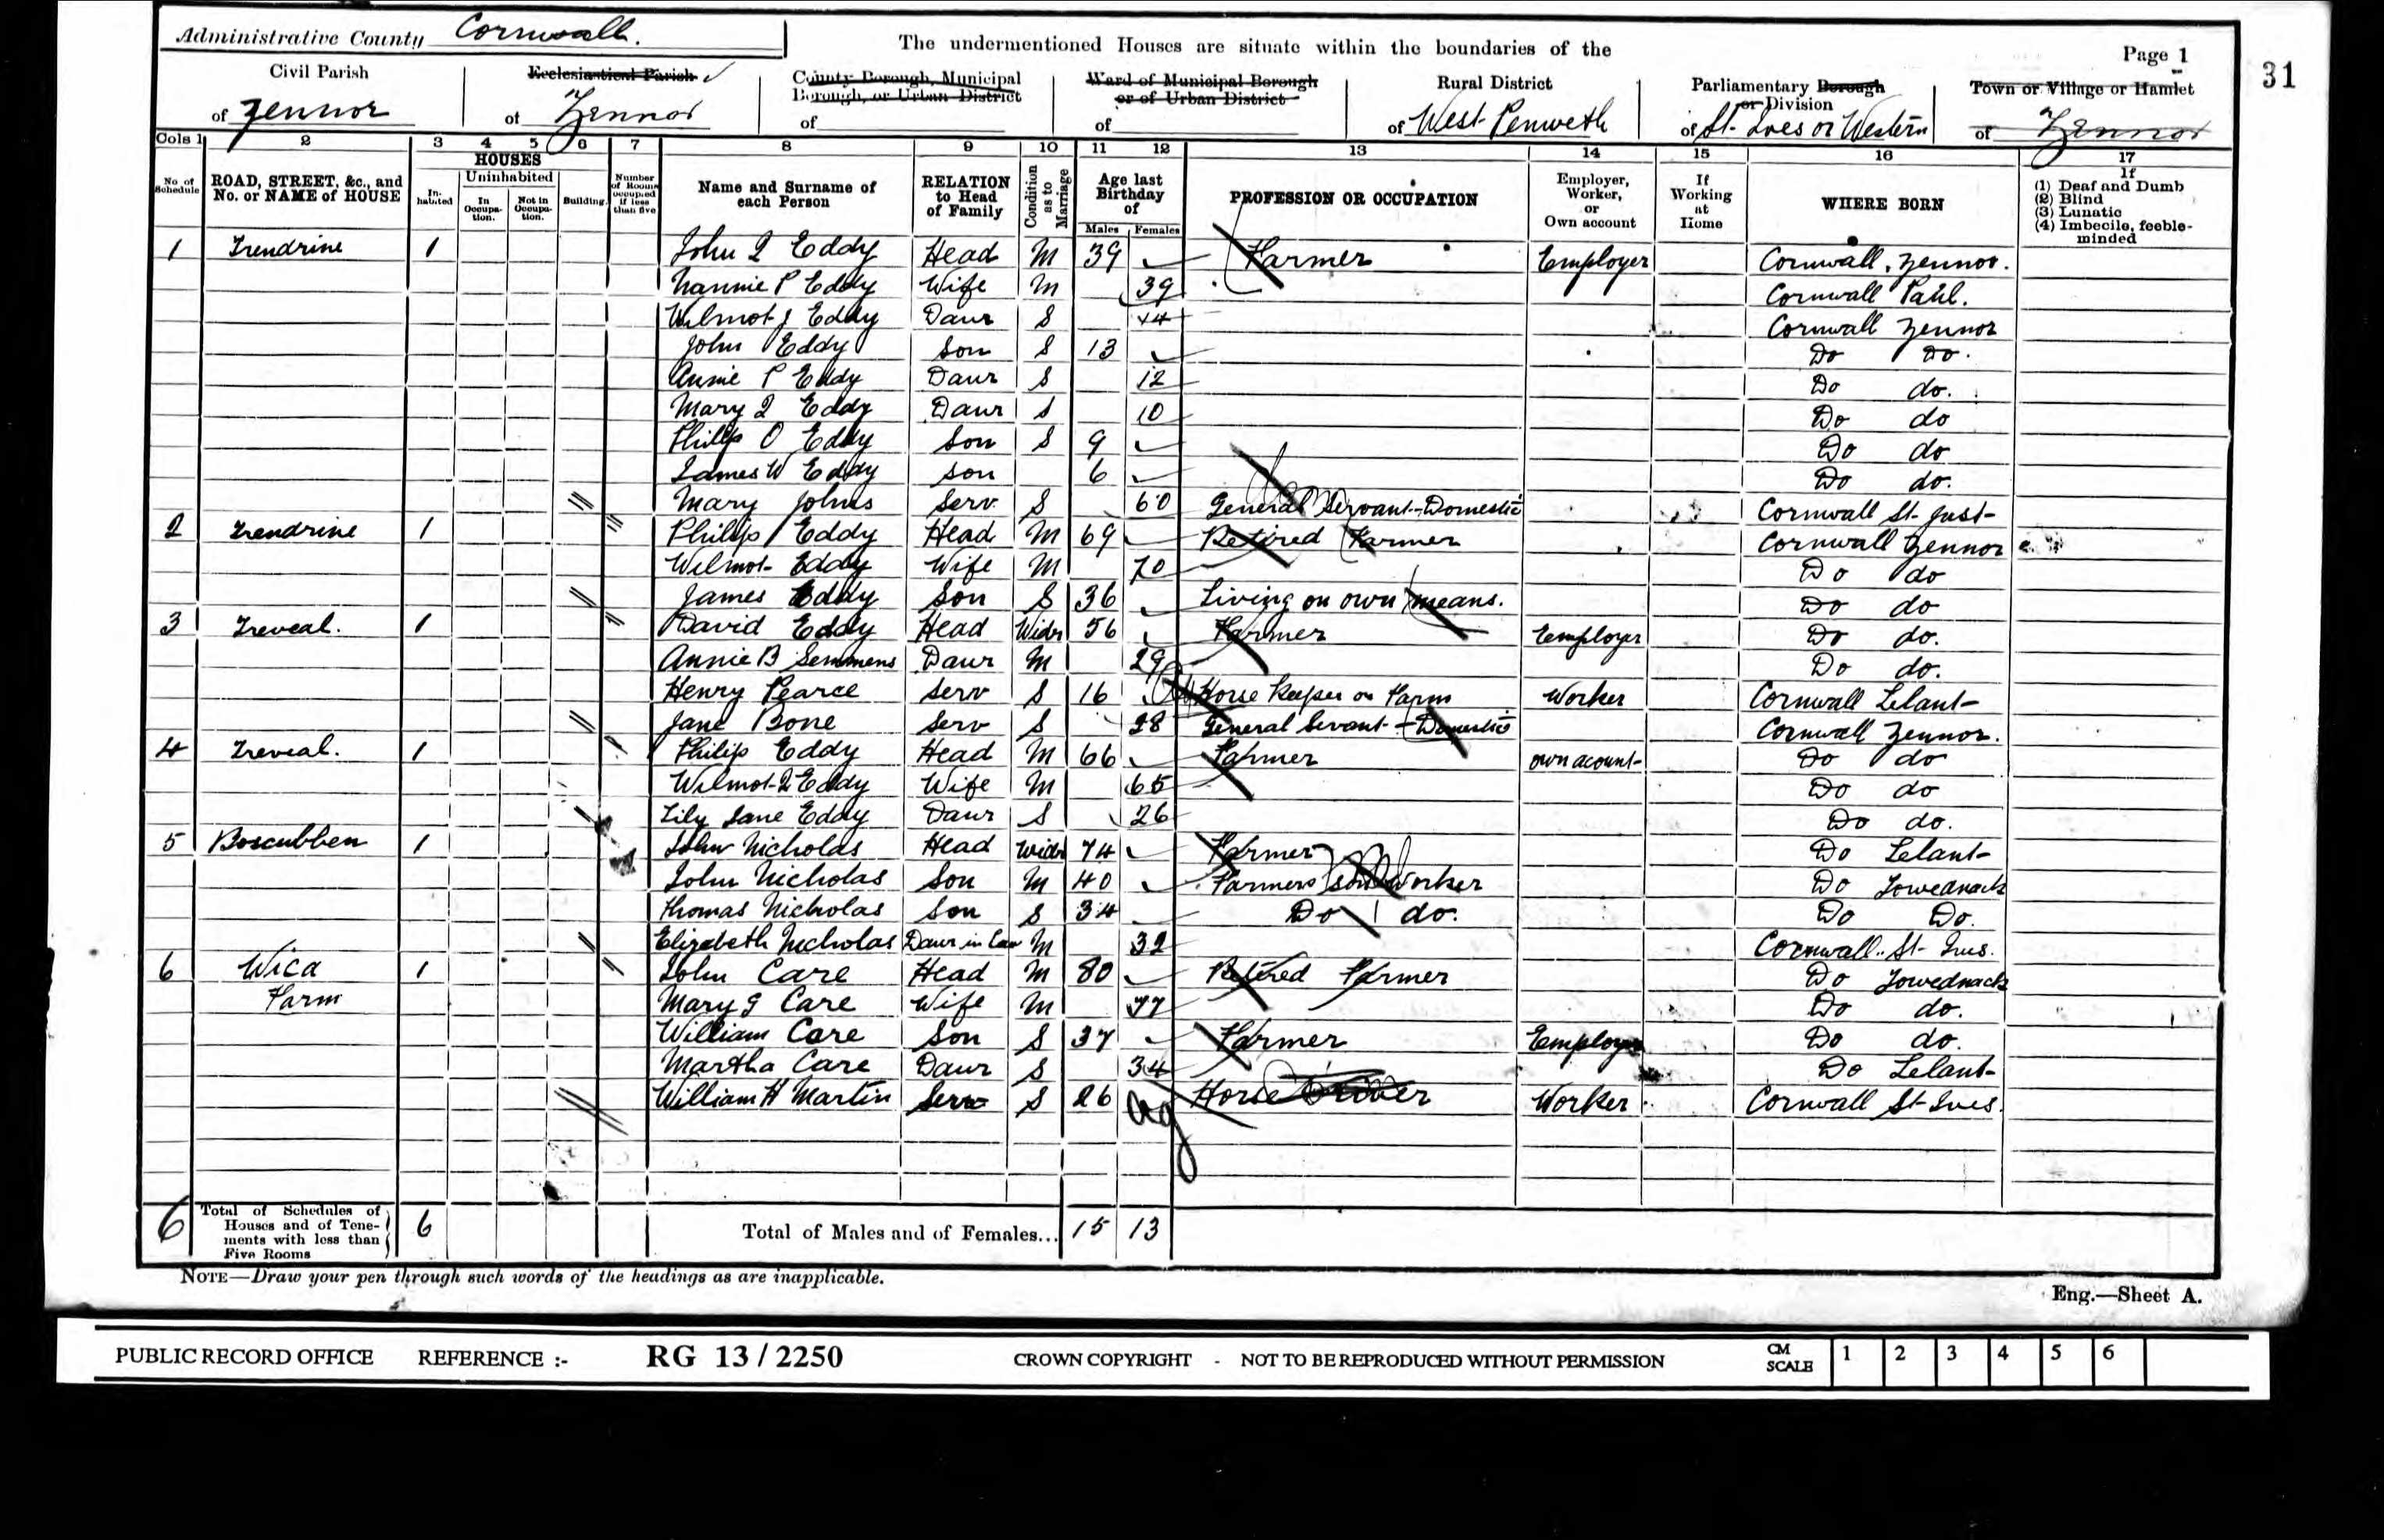 Administrative County Cornwall.
The undermentioned Houses are situate within the boundaries of the
Page 1
31
Civil Parish of Zennor
Ecclesiastical Parish of Zennor
County Borough, Municipal Borough, or Urban District of
Ward of Municipal Borough or of Urban District of
Rural District of West Penwith
Parliamentary Borough or Division of St. Ives or Western
Town or Village or Hamlet of Zennor
Cols 1 2 3 4 5 6 7 8 9 10 11 12 13 14 15 16 17
No of Schedule
ROAD, STREET, &c., and No. or NAME of HOUSE
HOUSES
Inhabited
Uninhabited
In Occupation.
Not in Occupation.
Building.
Number of Rooms occupied if less than five
Name and Surname of each Person
RELATION to Head of Family
Condition as to Marriage
Age last Birthday of
Males Females
PROFESSION OR OCCUPATION
Employer, Worker, or Own account
If Working at Home
WHERE BORN
If
(1) Deaf and Dumb
(2) Blind
(3) Lunatic
(4) Imbecile, feeble-minded
1 Trendrine 1 John Q Eddy Head M 39 Farmer Employer Cornwall, Zennor.
Nannie P Eddy Wife M 39 Cornwall Paul.
Wilmot J Eddy Daur S 14 Cornwall Zennor
John Eddy Son S 13 Do Do.
Annie P Eddy Daur S 12 Do do.
Mary Q Eddy Daur S 10 Do do
Philip O Eddy Son S 9 Do do
James W Eddy Son 6 Do do.
Mary Johns Serv. S 60 General Servant-Domestic Cornwall St Just
2 Trendrine 1 Philip Eddy Head M 69 Retired Farmer Cornwall Zennor
Wilmot Eddy Wife M 70 Do do
James Eddy Son S 36 Living on own means. Do do
3 Treveal. 1 David Eddy Head Widr 56 Farmer Employer Do do.
Annie B Semmens Daur M 29 Do do.
Henry Pearce Serv S 16 Horse Keeper on Farm Worker Cornwall Lelant
Jane Bone Serv S 28 General Servant-Domestic Cornwall Zennor.
4 Treveal. 1 Philip Eddy Head M 66 Farmer own acount Do do
Wilmot Q Eddy Wife M 65 Do do
Lily Jane Eddy Daur S 26 Do do.
5 Boscubben 1 John Nicholas Head Widr 74 Farmer Do Lelant
John Nicholas Son M 40 Farmers son Worker Do Towednack
Thomas Nicholas Son S 34 Do do. Do Do.
Elizabeth Nicholas Daur in Law M 32 Cornwall.. St Ives.
6 Wica 1 John Care Head M 80 Retired Farmer Do Towednack
Farm Mary G Care Wife M 77 Do do.
William Care Son S 37 Farmer Employer Do do.
Martha Care Daur S 34 Do Lelant
William H Martin Serv S 26 ag Horse Worker Cornwall St Ives.
6 Total of Schedules of Houses and of Tenements with less than Five Rooms 6 Total of Males and of Females... 15 13
NOTE—Draw your pen through such words of the headings as are inapplicable.
Eng.—Sheet A.
PUBLIC RECORD OFFICE REFERENCE :- RG 13 / 2250 CROWN COPYRIGHT - NOT TO BE REPRODUCED WITHOUT PERMISSION CM SCALE 1 2 3 4 5 6